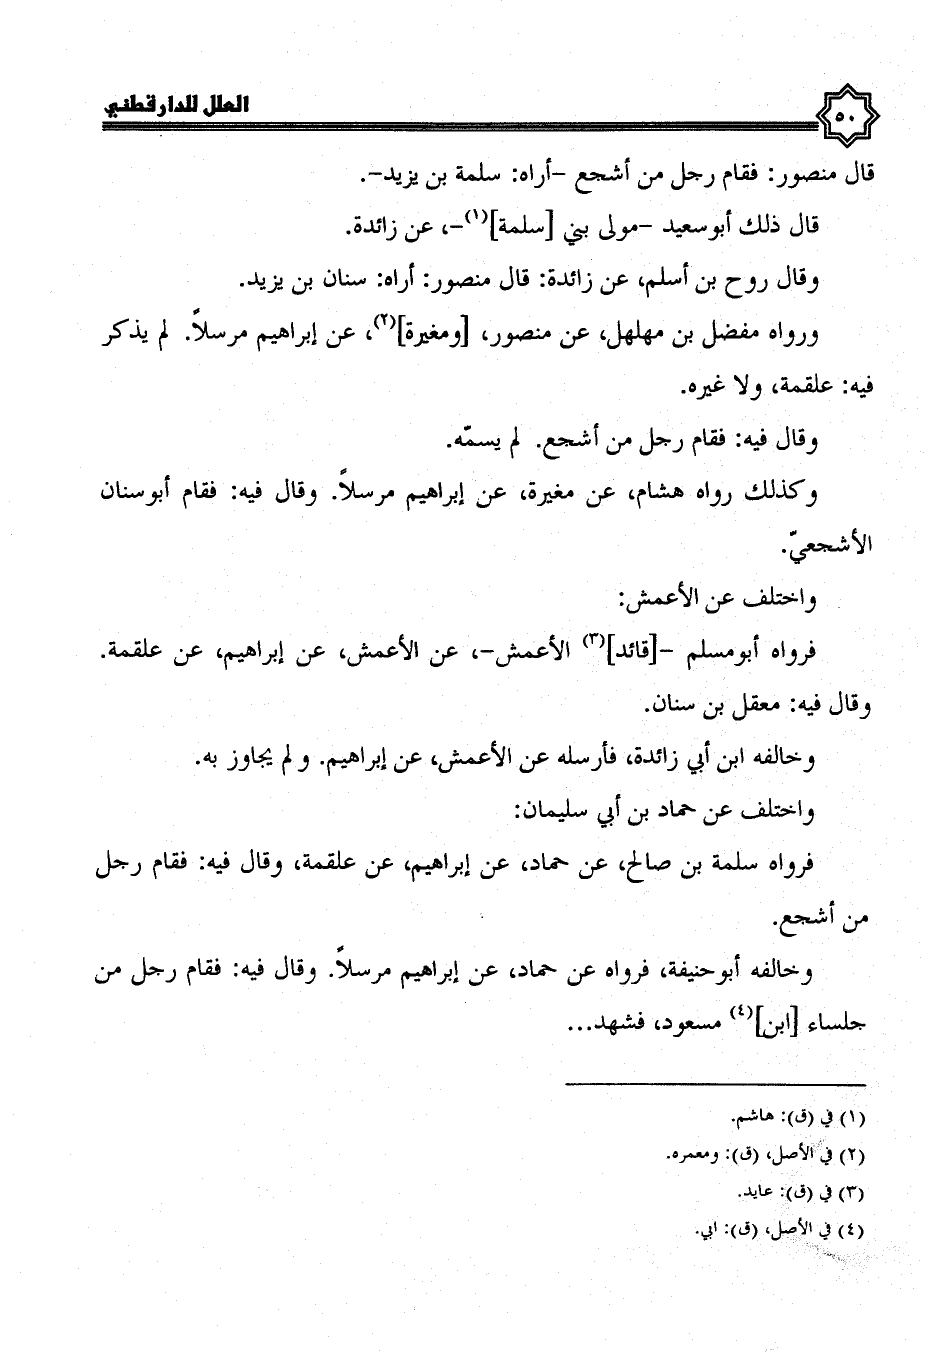 العلل للدارقطني
٥٠
قال منصور: فقام رجل من أشجع –أراه: سلمة بن يزيد–.
قال ذلك أبوسعيد –مولى بني [سلمة](١)–، عن زائدة.
وقال روح بن أسلم، عن زائدة: قال منصور: أراه: سنان بن يزيد.
ورواه مفضل بن مهلهل، عن منصور، [ومغيرة](٢)، عن إبراهيم مرسلاً. لم يذكر
فيه: علقمة، ولا غيره.
وقال فيه: فقام رجل من أشجع. لم يسمّه.
وكذلك رواه هشام، عن مغيرة، عن إبراهيم مرسلاً. وقال فيه: فقام أبوسنان
الأشجعيّ.
واختلف عن الأعمش:
فرواه أبومسلم –[قائد](٣) الأعمش–، عن الأعمش، عن إبراهيم، عن علقمة.
وقال فيه: معقل بن سنان.
وخالفه ابن أبي زائدة، فأرسله عن الأعمش، عن إبراهيم. ولم يجاوز به.
واختلف عن حماد بن أبي سليمان:
فرواه سلمة بن صالح، عن حماد، عن إبراهيم، عن علقمة، وقال فيه: فقام رجل
من أشجع.
وخالفه أبوحنيفة، فرواه عن حماد، عن إبراهيم مرسلاً. وقال فيه: فقام رجل من
جلساء [ابن](٤) مسعود، فشهد...
(١) في (ق): هاشم.
(٢) في الأصل، (ق): ومعمره.
(٣) في (ق): عايد.
(٤) في الأصل، (ق): ابي.